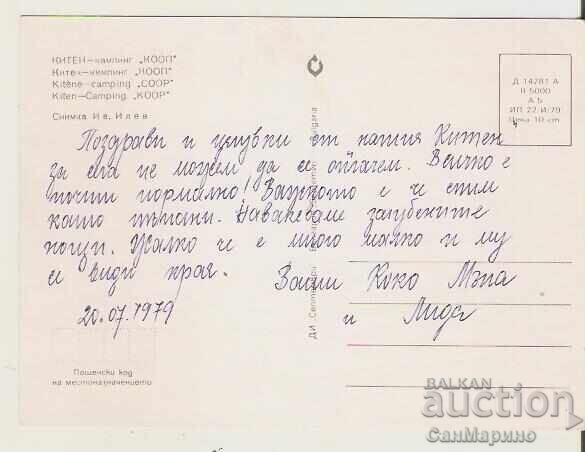 КИТЕН—къмпинг „КООП"
Китен—кемпинг „КООП"
Kitène—camping „COOP"
Kiten—Camping „KOOP"
Снимка Ив. Илев
Д 14281 А
II 5000
А 5
ИП 22/II/79
Цена 10 cm
Поздрави и целувки от нашия Китен
за сега не можем да се оплачем. Всичко е
почти нормално! Важното е че спим
като тъпани. Наваксваме загубените
нощи. Жалко че е много малко и му
се види края.
Ваши Коко Мъпа
и Лида
20.07.1979
ДИ „Септември
Bulgaria
Пощенски код
на местоназначението
BALKAN
auction
СанМарино